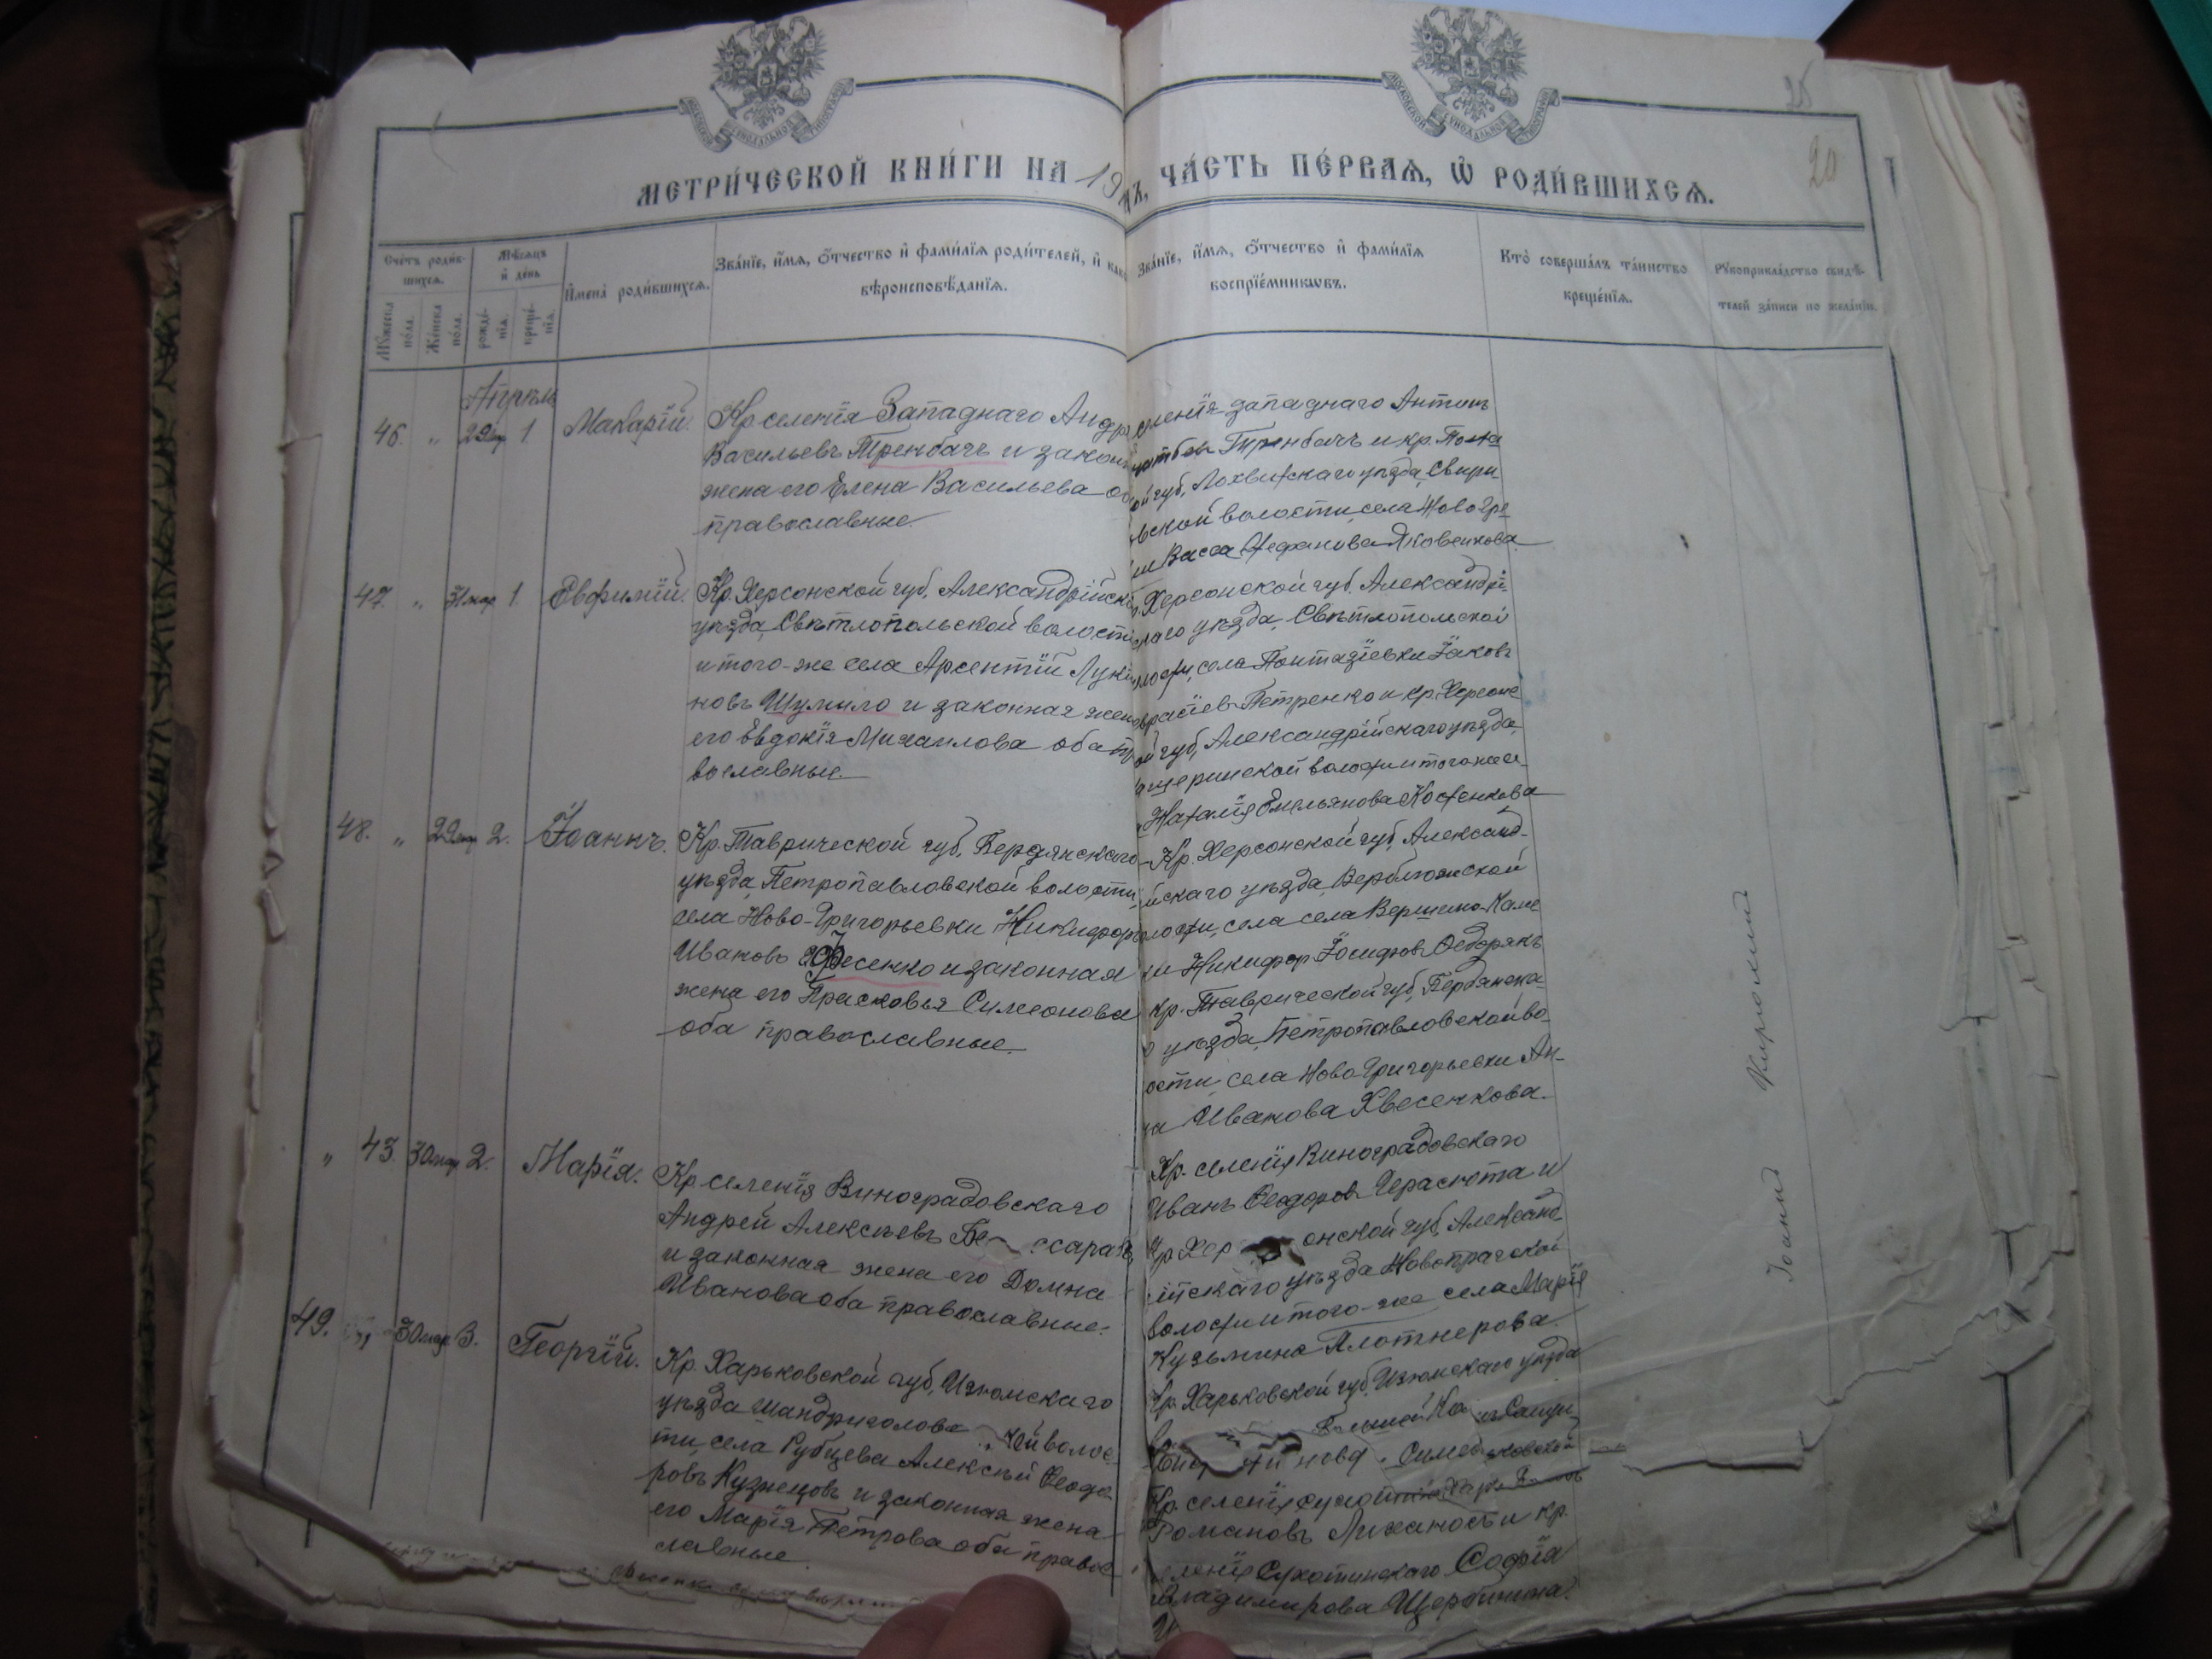 МОСКОВСКОЙ СѴНОДАЛЬНОЙ ТИПОГРАФІИ
МОСКОВСКОЙ СѴНОДАЛЬНОЙ ТИПОГРАФІИ
25
20
МЕТРИ́ЧЕСКОЙ КНИ́ГИ НА 19
ЧА́СТЬ ПЕ́РВАѦ, Ѡ РОДИ́ВШИХСѦ.
Сче́тъ роди́в-
шихся.
Мꙋ́жеска по́ла.
Же́нска по́ла.
Мѣ́сяцъ
и҆ де́нь
рожде́-
нїя.
креще́-
нїя.
И҆мена̀ роди́вшихся.
Зва́нїе, и҆́мя, ѻ҆́тчество и҆ фами́лїя роди́телей, и҆
вѣроисповѣ́данїя.
Зва́нїе, и҆́мя, ѻ҆́тчество и҆ фами́лїя
воспрїе́мниковъ.
Кто̀ соверша́лъ та́инство
креще́нїя.
Рꙋкоприкла́дство свидѣ́-
телей за́писи по жела́нїю.
Апрѣль
46. " 29 мар 1 Макарій.
Кр. селенія Западнаго Андр
Васильевъ Тренбачъ и закон
жена его Елена Васильева об
православные.
селенія западнаго Антонъ
Тренбачъ и кр. Полта
ой губ., Лохвицкаго уѣзда, Свири-
вской волости, села Ново Гре
Васса Стефанова Яковенкова.
47. " 31 мар 1. Евфимій.
Кр. Херсонской губ., Александрійска
уѣзда, Свѣтлопольской волости
и того-же села Арсентій Луки
новъ Шумило и законная жена
его Евдокія Михаилова оба пр
вославные.
Херсонской губ. Александрій-
скаго уѣзда, Свѣтлопольской
лости, села Пантазіевки Іаковъ
Петренко и кр. Херсонс
ой губ., Александрійскаго уѣзда,
волости и того же се-
Наталія Омельянова Костенкова
48. " 29 мар 2. Іоаннъ.
Кр. Таврической губ., Бердянскаго
уѣзда, Петропавловской волости,
села Ново-Григорьевки Никифоръ
Ивановъ Фесенко и законная
жена его Прасковья Симеонова
оба православные.
Кр. Херсонской губ., Александ-
ійскаго уѣзда, Верблюжской
лости, села села Вершино-Каме
Никифор Іосифов
кр. Таврической губ., Бердянска-
о уѣзда, Петропавловской во-
ости, села Ново Григорьевки Ан-
на Иванова Хвесенкова.
" 43. 30 мар 2. Марія.
Кр. селенія Виноградовскаго
Андрей Алексѣевъ Бе ссарабъ
и законная жена его Домна
Иванова оба православные.
Кр. селенія Виноградовскаго
Иванъ Феодоровъ Герасюта и
кр. Хер онской губ., Александ
ійскаго уѣзда Новопрагской
волости и того-же села Марія
Кузьмина Плотнерова.
49. 30 мар 3. Георгій.
Кр. Харьковской губ., Изюмскаго
уѣзда Шандриголовс й волос
ти, села Рубцева Алексѣй Феодо
ровъ Кузнецовъ и законная жена
его Марія Петрова оба правос
лавные.
Кр. Харьковской губ., Изюмскаго уѣзда
Кр. селенія
Романовъ и кр.
селенія Сухотинскаго Софія
Владимирова Щербинина.
Іоаннъ